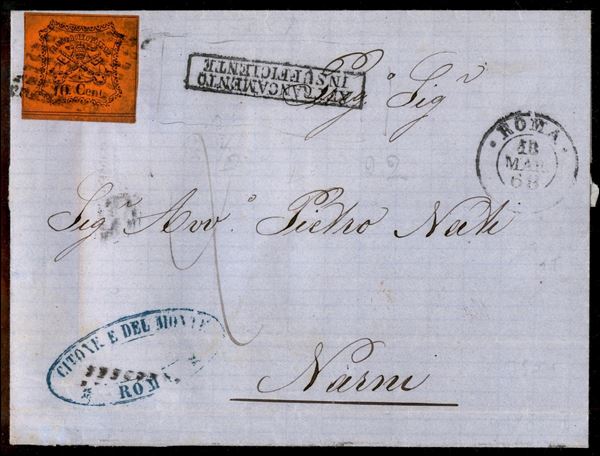 10 Cent
AFFRANCAMENTO
INSUFFICIENTE
Sig
ROMA
18
MAR
68
Sig Avv.º Pietro
Narni
CITONE E DEL MONTE
ROMA